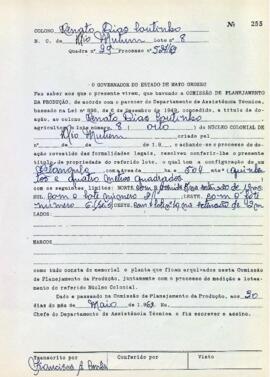 Nº 255
COLONO Renato Dias Coutinho
N. C. de Rio Mutum Lote nº 8
Quadra nº 29 Processo nº
O GOVERNADOR DO ESTADO DE MATO GROSSO
Faz saber aos que o presente virem, que havendo a COMISSÃO DE PLANEJAMENTO
DA PRODUÇÃO, de acordo com o parecer do Departamento de Assistência Técnica,
baseado na Lei nº 336, de 6 de Dezembro de 1949, concedido, a título de doa-
ção, ao colono Renato Dias Coutinho
agricultor lote número 8 ( oito ) do NÚCLEO COLONIAL DE
Rio Mutum criado pela
nº de de de 19 , e achando-se o processo de doa-
ção revestido das formalidades legais, resolveu conferir-lhe o presente
título de propriedade do referido lote, o qual tem a configuração de um
Retangulo com a área de 504 mts² ( quinhen-
tos e quatro metros quadrados
com os seguintes limites: NORTE
SUL com o lote número 21 LESTE com o lote
número OESTE
LADOS:
MARCOS
como tudo consta do memorial e planta que ficam arquivados nesta Comissão
de Planejamento da Produção, juntamente com o processo de medição e lotea-
mento do referido Núcleo Colonial.
Dado e passado na Comissão de Planejamento da Produção, aos 30
dias do mês de Maio de 1.962. Eu,
Chefe do Departamento de Assistência Técnica o fiz escrever e assino.
Transcrito por Conferido por Visto
Francisca